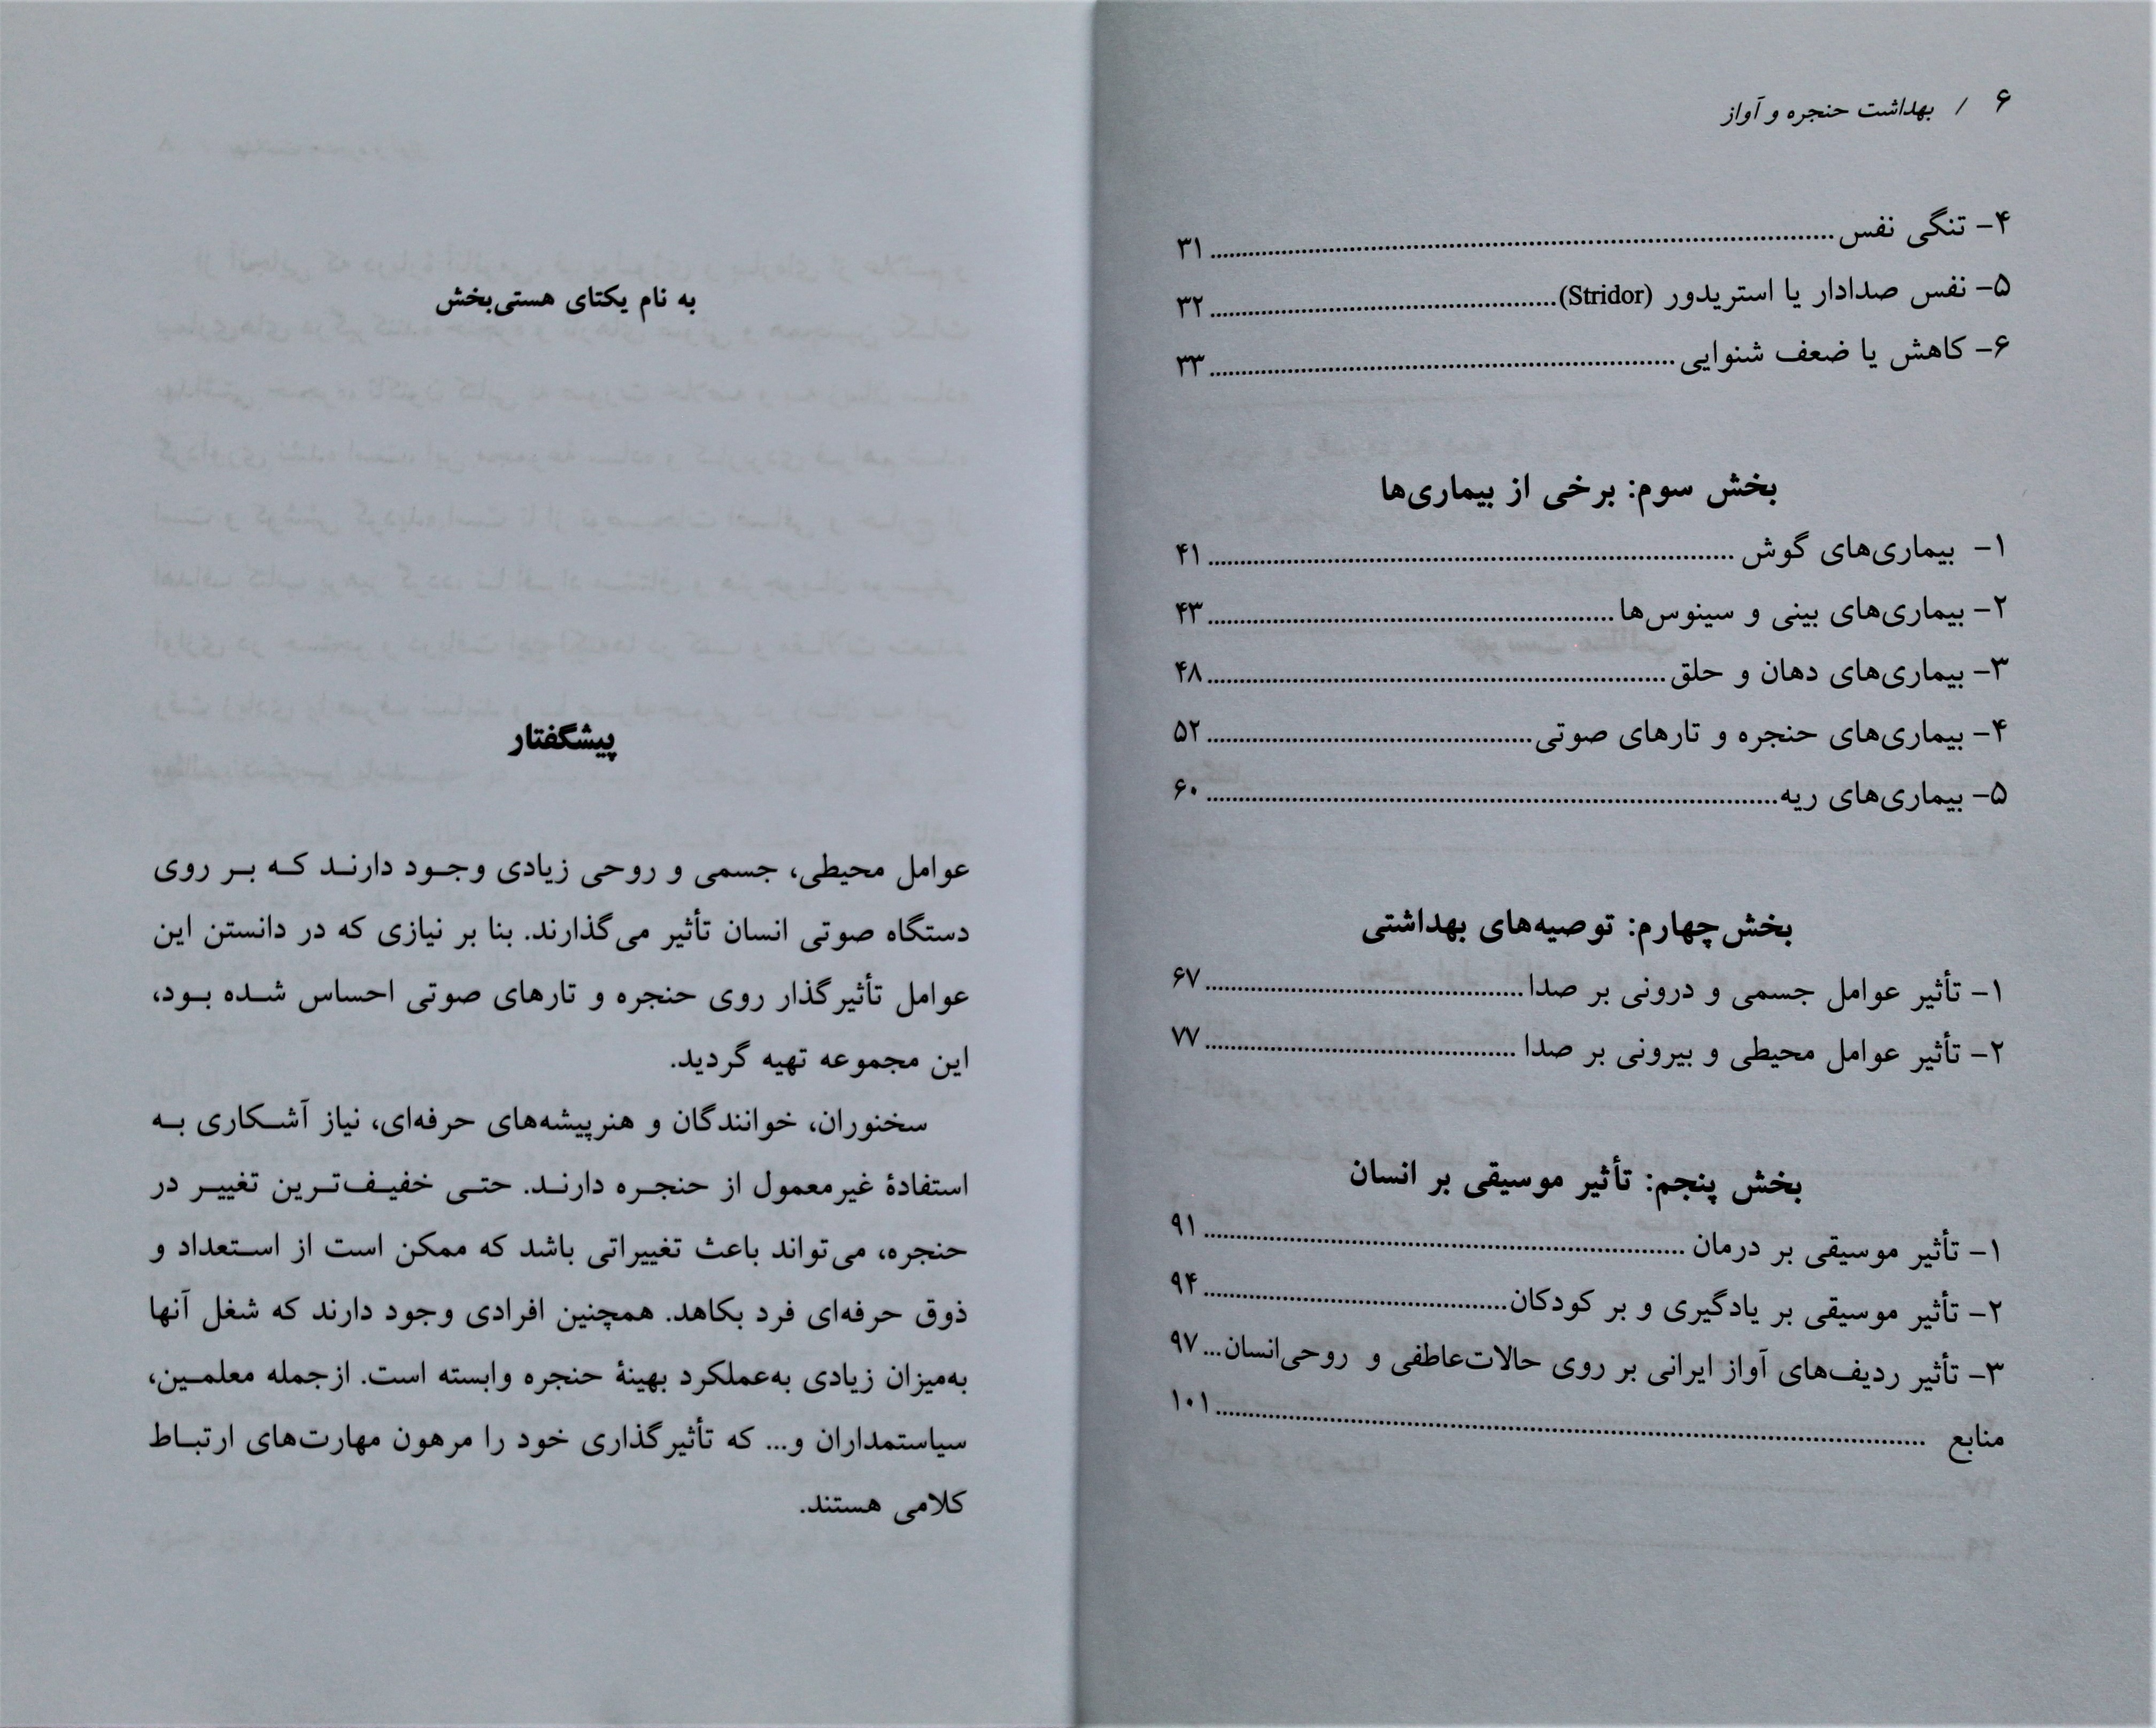 ۶ / بهداشت حنجره و آواز
۴- تنگی نفس ........ ۳۱
۵- نفس صدادار یا استریدور (Stridor) ........ ۳۲
۶- کاهش یا ضعف شنوایی ........ ۳۳
بخش سوم: برخی از بیماری‌ها
۱- بیماری‌های گوش ........ ۴۱
۲- بیماری‌های بینی و سینوس‌ها ........ ۴۳
۳- بیماری‌های دهان و حلق ........ ۴۸
۴- بیماری‌های حنجره و تارهای صوتی ........ ۵۲
۵- بیماری‌های ریه ........ ۶۰
بخش چهارم: توصیه‌های بهداشتی
۱- تأثیر عوامل جسمی و درونی بر صدا ........ ۶۷
۲- تأثیر عوامل محیطی و بیرونی بر صدا ........ ۷۷
بخش پنجم: تأثیر موسیقی بر انسان
۱- تأثیر موسیقی بر درمان ........ ۹۱
۲- تأثیر موسیقی بر یادگیری و بر کودکان ........ ۹۴
۳- تأثیر ردیف‌های آواز ایرانی بر روی حالات‌عاطفی و روحی‌انسان ... ۹۷
منابع ........ ۱۰۱
به نام یکتای هستی‌بخش
پیشگفتار
عوامل محیطی، جسمی و روحی زیادی وجود دارند که بر روی
دستگاه صوتی انسان تأثیر می‌گذارند. بنا بر نیازی که در دانستن این
عوامل تأثیرگذار روی حنجره و تارهای صوتی احساس شده بود،
این مجموعه تهیه گردید.
سخنوران، خوانندگان و هنرپیشه‌های حرفه‌ای، نیاز آشکاری به
استفادهٔ غیرمعمول از حنجره دارند. حتی خفیف‌ترین تغییر در
حنجره، می‌تواند باعث تغییراتی باشد که ممکن است از استعداد و
ذوق حرفه‌ای فرد بکاهد. همچنین افرادی وجود دارند که شغل آنها
به‌میزان زیادی به‌عملکرد بهینهٔ حنجره وابسته است. ازجمله معلمین،
سیاستمداران و... که تأثیرگذاری خود را مرهون مهارت‌های ارتباط
کلامی هستند.